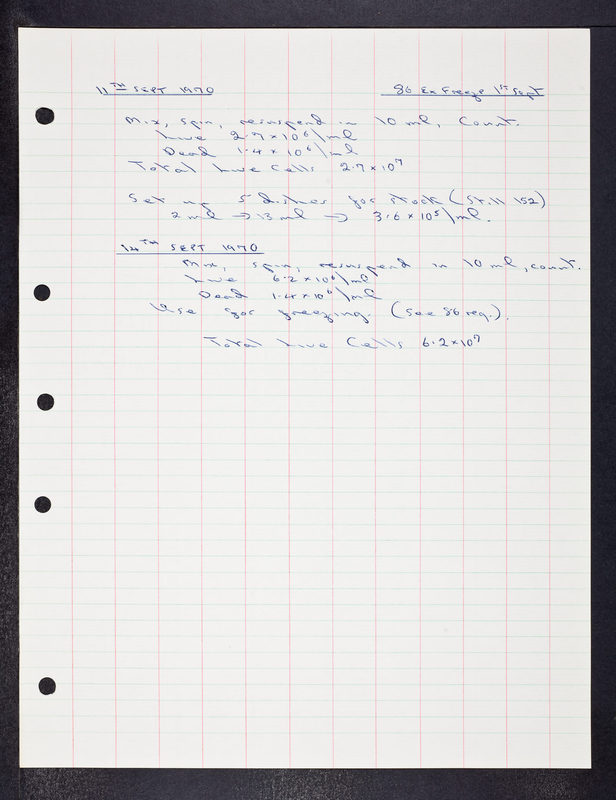 11TH SEPT 1970
86 Ex Freeze 1ST Sept
Mix, spin, resuspend in 10 ml, count.
Live 2.7 x 10⁶/ml
Dead 1.4 x 10⁶/ml
Total Live Cells 2.7 x 10⁷
Set up 5 dishes for stock (Still 152)
2 ml → 13 ml → 3.6 x 10⁵/ml.
14TH SEPT 1970
Mix, spin, resuspend in 10 ml, count.
Live 6.2 x 10⁶/ml
Dead 1.4 x 10⁶/ml
Use for freezing. (See 86 reg.).
Total Live Cells 6.2 x 10⁷